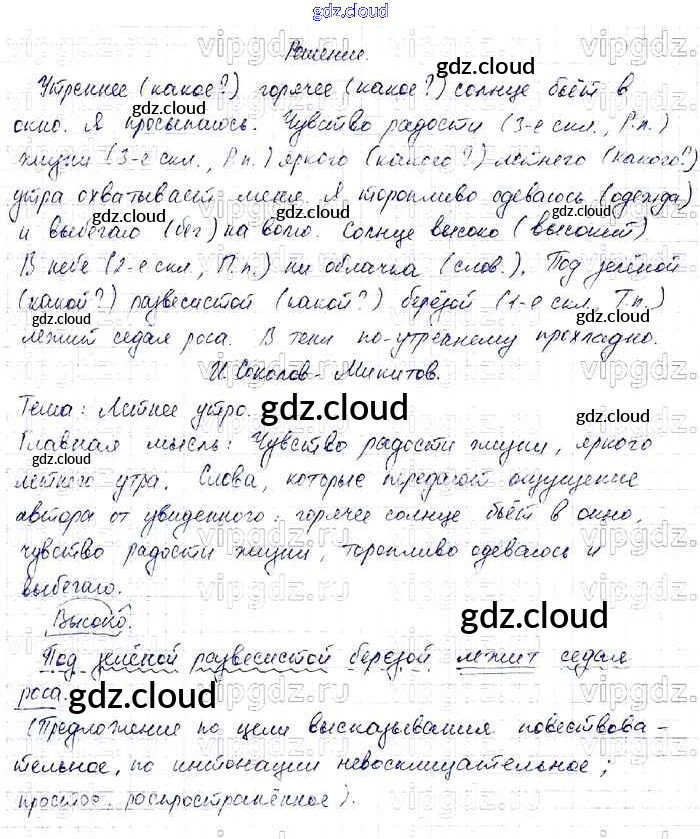 gdz.cloud
Решение.
Утреннее (какое?) горячее (какое?) солнце бьёт в
окно. Я просыпаюсь. Чувство радости (3-е скл., Р.п.)
жизни (3-е скл., Р.п.) яркого (какого?) летнего (какого?)
утра охватывает меня. Я торопливо одеваюсь (одежда)
и выбегаю (бег) на волю. Солнце высоко (высокий)
В небе (2-е скл., П.п.) ни облачка (слов.). Под зелёной
(какой?) развесистой (какой?) берёзой (1-е скл., Т.п.)
лежит седая роса. В тени по-утреннему прохладно.
И. Соколов-Микитов.
Тема: Летнее утро.
Главная мысль: Чувство радости жизни, яркого
летнего утра. Слова, которые передают ощущение
автора от увиденного: горячее солнце бьёт в окно,
чувство радости жизни, торопливо одеваюсь и
выбегаю.
Высоко.
Под зелёной развесистой берёзой лежит седая
роса.
(Предложение по цели высказывания повествова-
тельное, по интонации невосклицательное;
простое, распространённое).